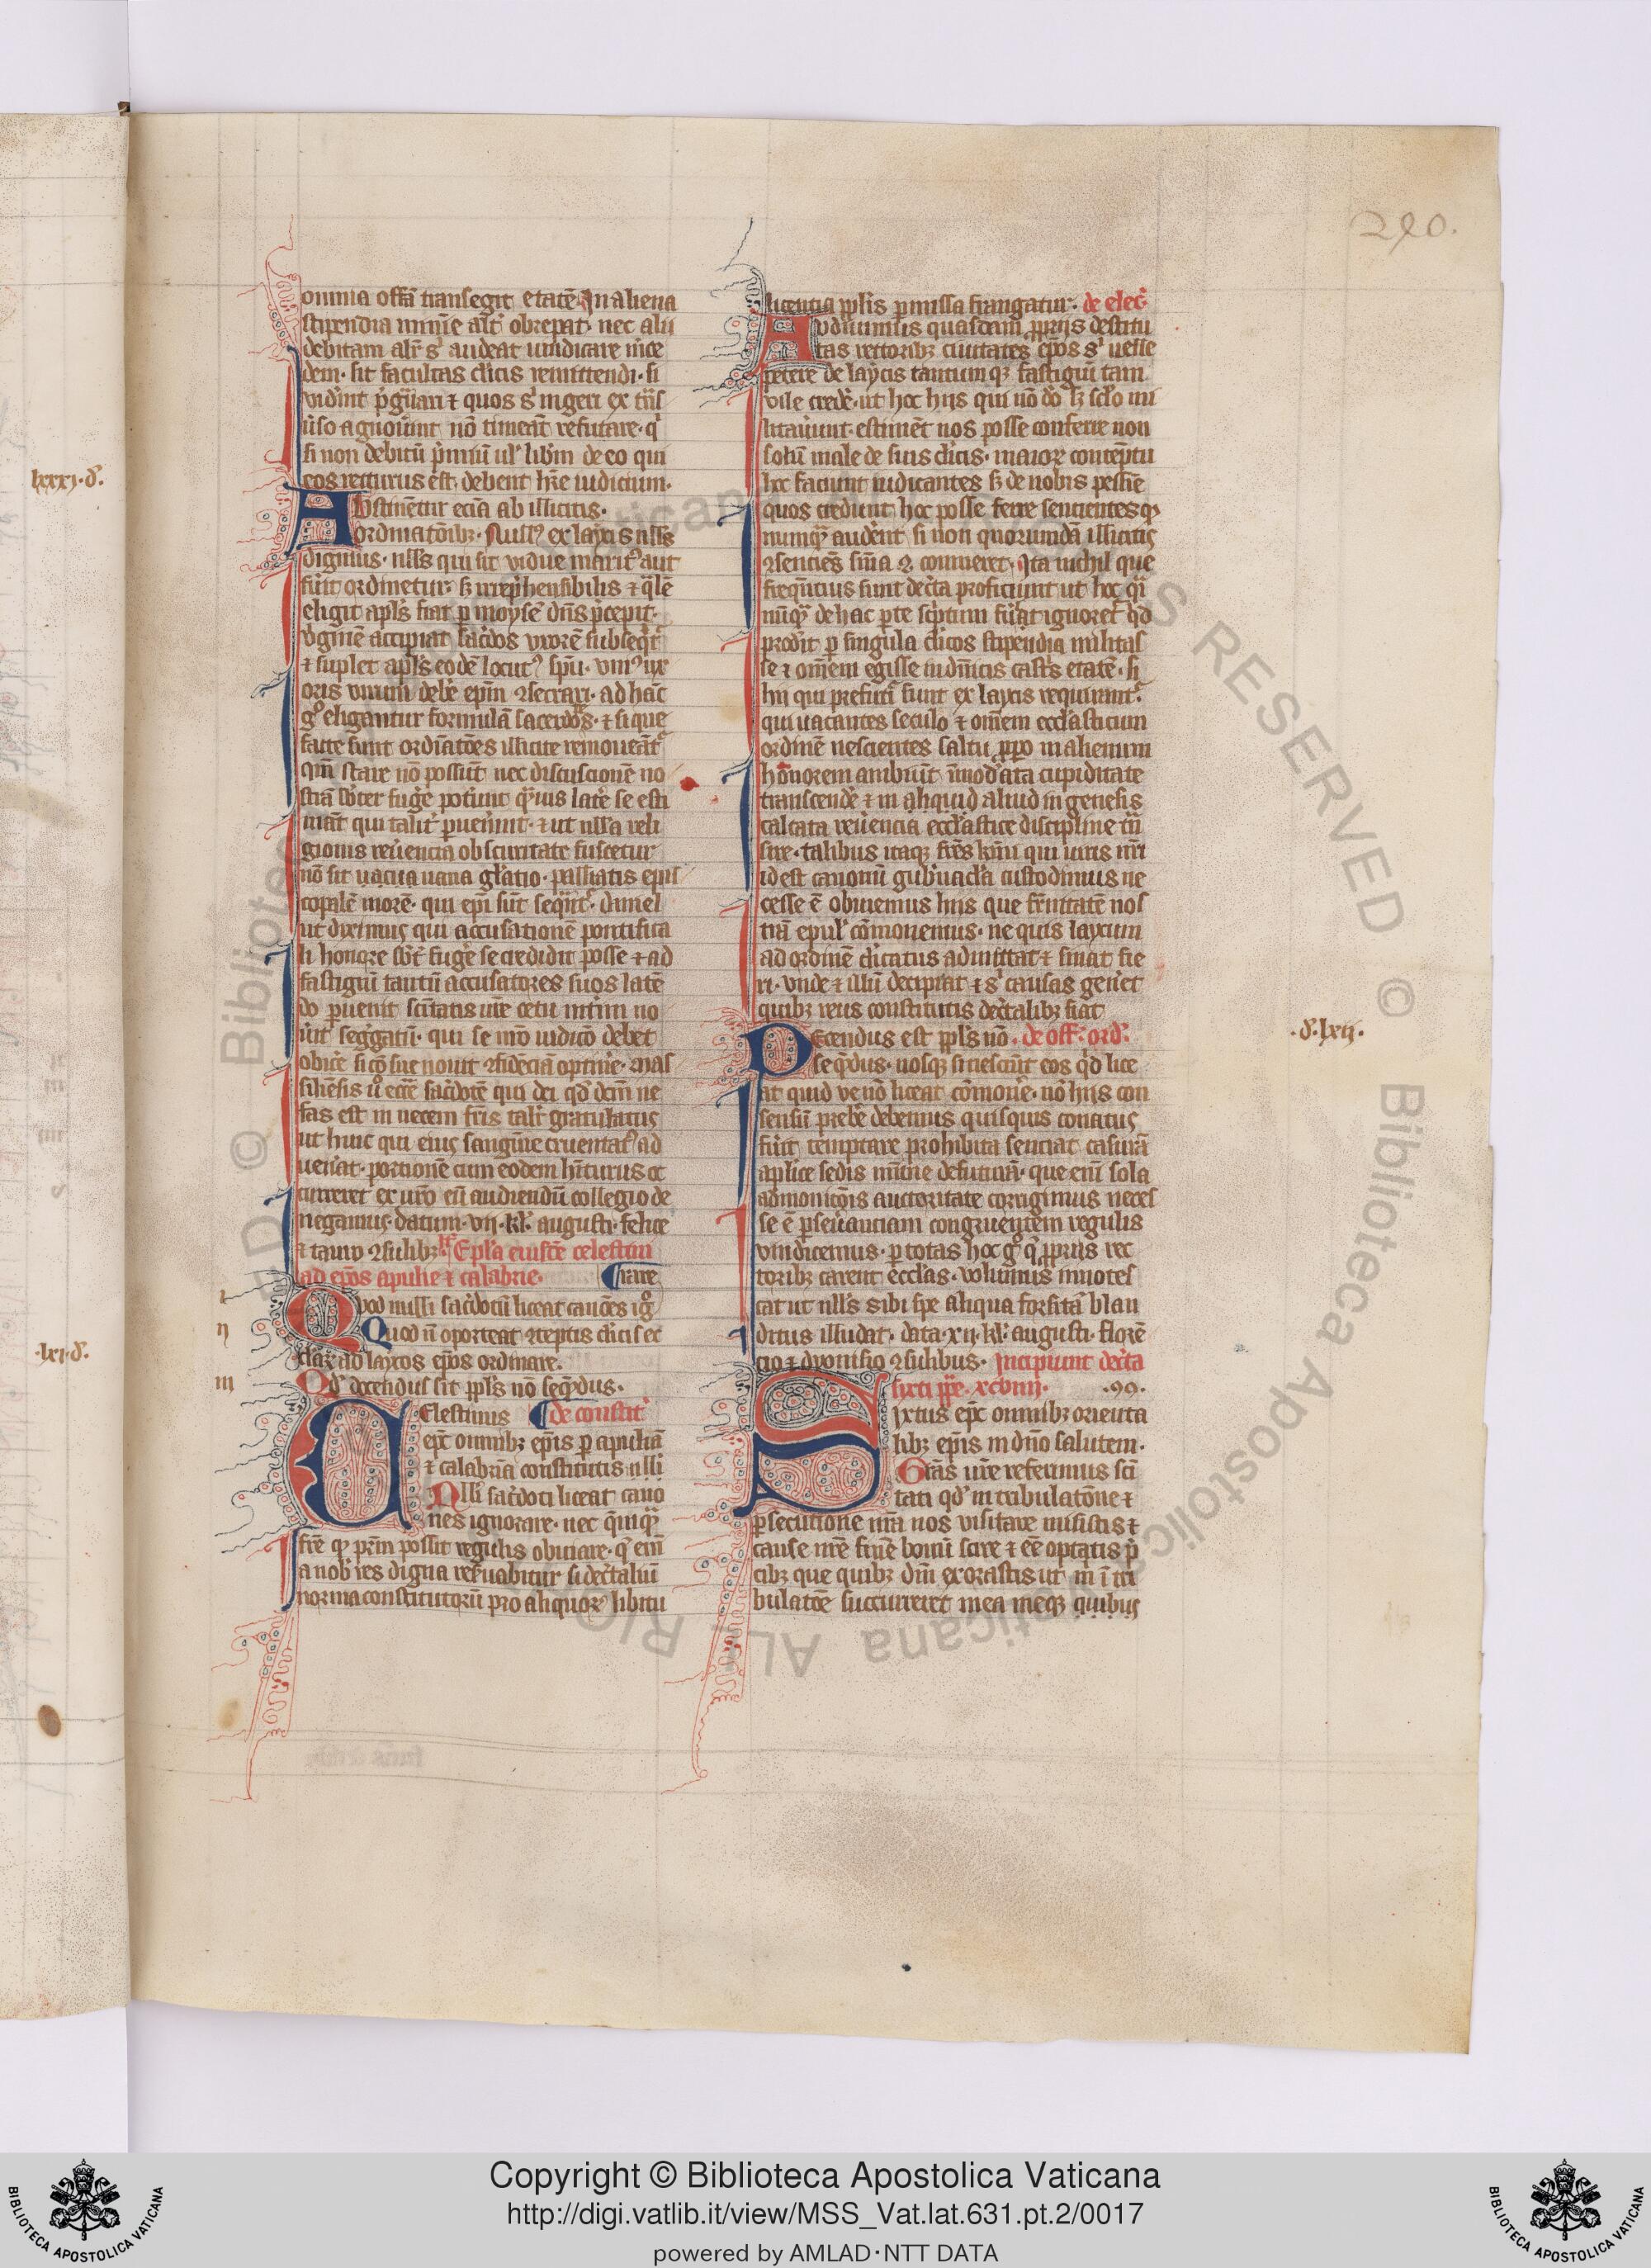 290.
omnia offā transegit etatē In aliena
stipendia minīe alt' obrepat. nec alii
debitam alt'i s' audeat uindicare m'ce
dem. sit facultas cl'icis renitendi. si
vid'int p'g̃uari ⁊ quos s' ingeri ex tn̄s
ū'so agnou'int nō timeāt refutare. q'
si non debitū p'miū ul' lib'm de eo qui
eos recturus est. debent h're iudicium.
lxxxi. d̄.
Abstinētur eciā ab illicitis
ordinatōnibz. Null' ex laycis nll's
digamus. nll's qui sit vidue marit' aut
fu'it ordinetur. sz irrep'hensibilis ⁊ q̄lē
eligit apl's fiat p moysē dn̄s p'cepit.
v'ginē accipiat sac'dos vxorē subseq't'
⁊ suplet apl's eodē locut' spū. vni' ux
oris virum debe' ep̄m ɔsecrari. ad hāc
g° eligantur formulā sacerdo's. ⁊ si que
facte sunt ordiatōes illicite remoueāt'
qm̄ stare nō possūt nec discussionē no
strā
māt qui talit' p̱uen'int. ⁊ ut nll'a reli
gionis reu'encia obscuritate fuscetur
nō sit uacua uana gl'atio. palliatis epis
copalē morē. qui ep̄i sūt seqūt'. daniel
ut diximus qui accusationē pontifica
li honore se credidit posse ⁊ ad
fastigiū tantū accusatores suos latē
do p̱uenit sc̄itatis ur̄e cetu int'im no
u'it seg'gatū. qui se n̄ro iudicō debet
obice' si cō sue nouit ɔfidēciā optine'. Mas
siliēsis u° ecc̄e sac'dotē qui dei qd̄ dc̄m ne
fas est in necem fr̄is talit' gratulatus
ut huic qui eius sanguine cruentat' ad
uen'at. portionē cum eodem h'iturus oc
curreret ex ur̄o eū audiendū collegio de
negamus. datum. vii. kl'. augusti. felice
⁊ tauro ɔsulibz. Epl'a eiusdē celestini
ad ep̄os apulie ⁊ calabrie.
i
Quod nulli sac'dotū liceat canōes ig°
rare
ii
Quod n̄ oporteat ɔteptis cl'icis ec
cl'iaz ad laycos ep̄os ordinare.
.lxi. d̄.
iii
Qd̄ docendus sit ppl's nō seq̄ndus.
Celestinus de constit'
ep̄c omnibz ep̄is p apuliā
⁊ calabriā constitutis
Nlli sac'doti liceat cano
nes ignorare. nec q̄ciq̄
fr̄e qȝ pr̄m possit regulis obuiare. q̄ eni
a nob' res digna res'uabitur si dec'taliū
norma constitutorū pro aliquoꝝ libitu
licentia ppl'is p̱missa frangatur. de elec'.
Avdiuimus quasdam pprijs destitu
tas rectoribz ciuitates ep̄os s' uelle
petere de laycis tantum qȝ fastigiū tam
vile crede'. ut hoc hijs qui nō dō sz sc'lo mi
litau'unt. estimēt nos posse conferre non
solū male de suis cl'icis. in maioꝝ contēptu
hec faciunt iudicantes sz de nobis pessīe
quos credunt hoc posse facere sentientes qȝ
nunq̄ audent si non quorundā illicitis
ɔsencies Ita nichil que
freq̄ncius sunt dec'ta proficiunt ut hoc q̄i
nūq̄ de hac pte sc'ptum fu'at ignoret' qd̄
prod'it p singula cl'icos stipendia militas
se ⁊ omēm egisse in dn̄icis cast's etatē. si
hij qui prefuti' sunt ex laycis requirant'.
qui uacantes seculo ⁊ omēm eccl'iasticum
ordinē nescientes saltu ppo in alienum
honorem ambiūt īmod'ata cupiditate
transcende' ⁊ in aliquid aliud in genesis
calcata reu'encia eccl'astice discipline trā
sire. talibus itaqȝ fr̄es km̄i qui iuris nr̄i
id est canonū gub'nacl'a custodimus ne
cesse ē obuiemus hijs que fr̄nitatē nos
trā epul' cōmonemus. ne quis laycum
ad ordinē cl'icatus admittat ⁊ sinat fie
ri. vnde ⁊ illū decipiat ⁊ s' causas gen'et
quibz reus constitutis dec'talibz fiat
.d̄. lxii.
Docendus est ppl's nō. de off. ord.
seq̄ndus. nosqȝ si nesciūt eos qd̄ lice
at quid ue nō liceat cōmone'. nō hijs con
sensū prebe' debemus quisquis conatus
fu'it temptare prohibita senciat casurā
aplice sedis mīme defuturā. que enī sola
admonicōis auctoritate corrigimus neces
se ē p̱seu'anciam congruentem regulis
vindicemus. p totas hoc g° q̄ pprijs rec
toribz carent eccl'ias. volumus innotes
cat ut nll's sibi spe aliqua forsitā blan
ditus illudat. data. xii. kl'. augusti. florē
cio ⁊ dyonisio ɔsulibus. Incipiunt dec'ta
sixti p̄pe. xcviiij.
Sixtus ep̄c omnibz orienta
libz ep̄is in dn̄o salutem.
Grās ur̄e referimus sc̄i
tati qd̄ in tribulatōne ⁊
p̱secutione nr̄a nos visitare misistis ⁊
cause nr̄e finē bonū scire ⁊ eē optatis p̱
cibz que quibz dm̄ exorastis ut m' ī tri
bulatōe succurreret mea meqȝ quibus
Copyright © Biblioteca Apostolica Vaticana
http://digi.vatlib.it/view/MSS_Vat.lat.631.pt.2/0017
powered by AMLAD·NTT DATA
BIBLIOTECA APOSTOLICA VATICANA
BIBLIOTECA APOSTOLICA VATICANA